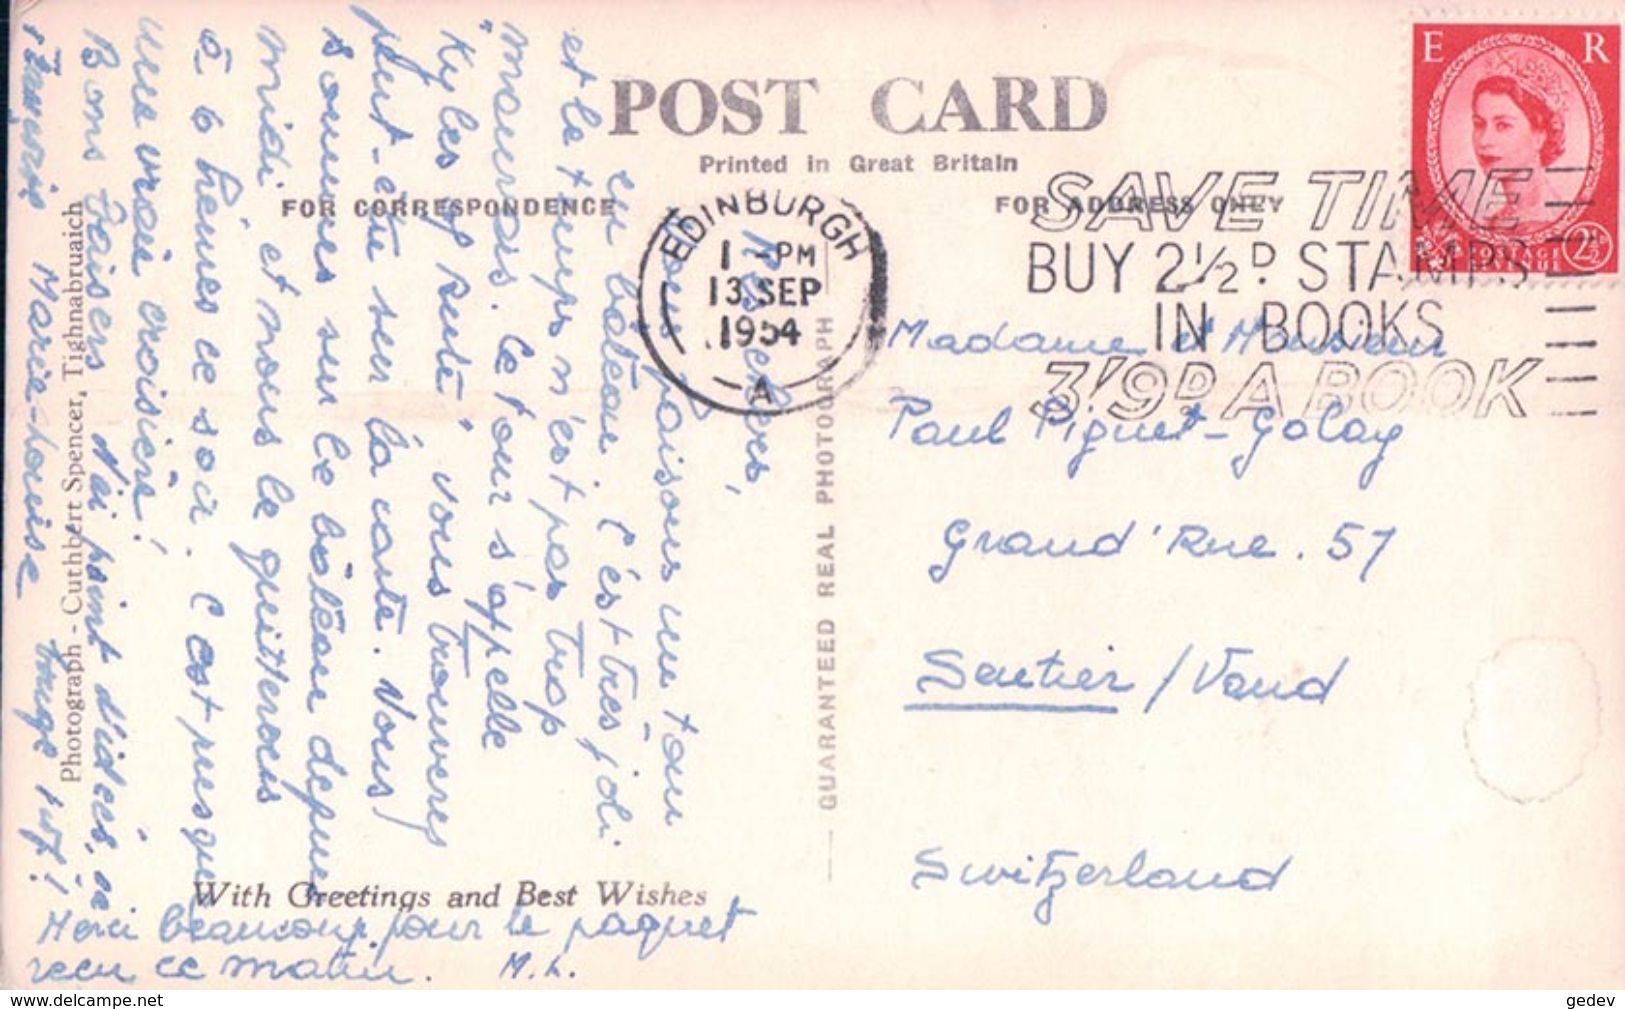 POST CARD
Printed in Great Britain
FOR CORRESPONDENCE
FOR ADDRESS ONLY
E R
POSTAGE REVENUE
2½D
EDINBURGH
1 - PM
13 SEP
1954
A
SAVE TIME
BUY 2½D STAMPS
IN BOOKS
3/9D A BOOK
Mes chers,
Nous faisons une tour
en bâteau. C'est très joli
et le temps n'est pas trop
mauvais. Le tour s'appelle
"Kyles of Bute". Vous trouverez
peut-être sur la carte. Nous
sommes sur le bâteau depuis
midi et nous le quitterons
à 6 heures ce soir. C'est presque
une vraie croisière!
Bons baisers
Marie-Louise
N'ai point d'idées, ça
Merci beaucoup pour le paquet
recu ce matin. M.L.
Photograph - Cuthbert Spencer, Tighnabruaich
With Greetings and Best Wishes
GUARANTEED REAL PHOTOGRAPH
Madame et Monsieur
Paul Piguet-Golay
Grand'Rue. 57
Sentier / Vaud
Switzerland
www.delcampe.net
gedev